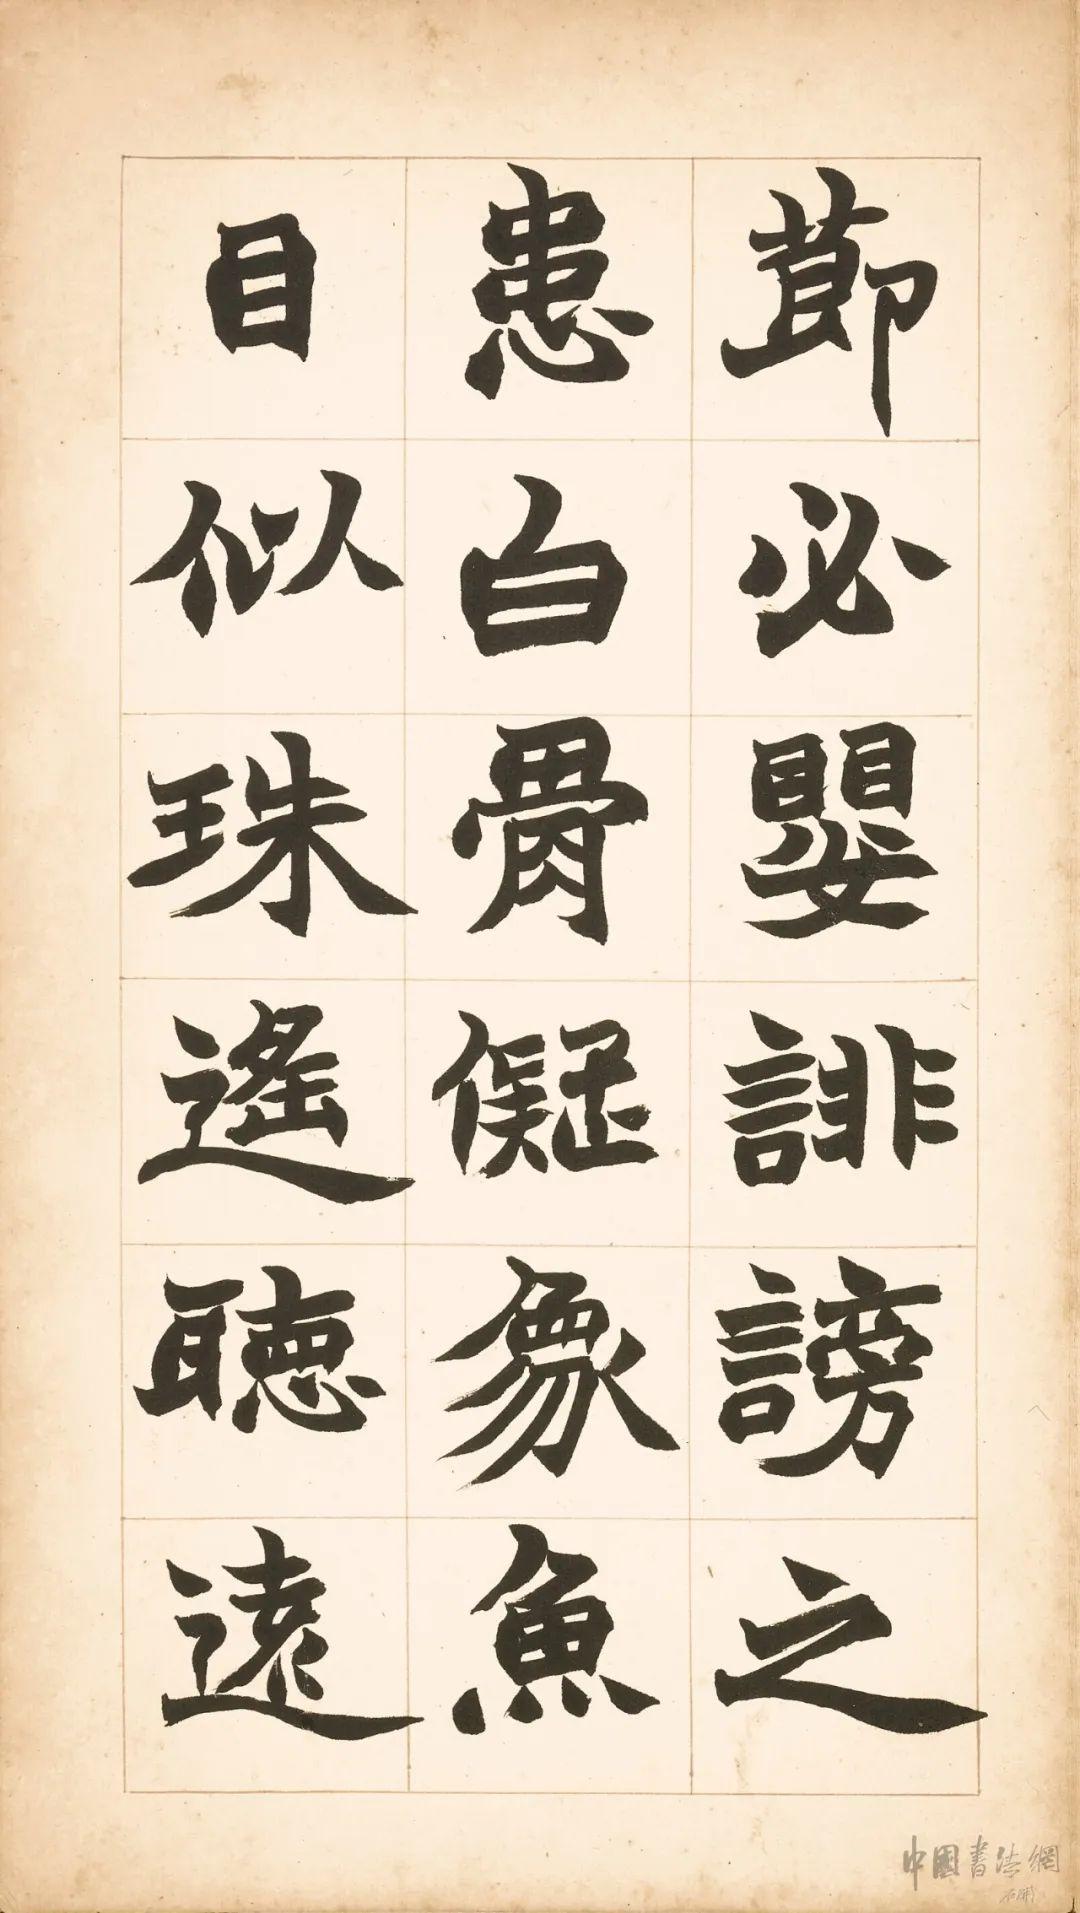 莭必嬰誹謗之
患白骨儗象魚
目似珠遙聽遠
中國書法網